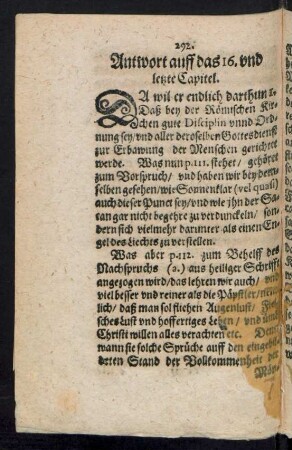 292.
Antwort auff das 16. vnd
letzte Capitel.
DA wil er endlich darthun 1.
Daß bey der Römischen Kir-
chen gute Disciplin vnnd Ord-
nung sey/ vnd aller deroselben Gottesdienst
zur Erbawung der Menschen gerichtet
werde. Was nun p. 111. stehet/ gehöret
zum Vorspruch/ vnd haben wir bey dem-
selben gesehen/ wie Sonnenklar (vel quasi)
auch dieser Punct sey/ vnd wie ihn der Sa-
tan gar nicht begehre zu verdunckeln/ son-
dern sich vielmehr darunter als einen En-
gel des Liechts zu verstellen.
Was aber p. 112. zum Behelff des
Nachspruchs (2.) aus heiliger Schrifft
angezogen wird/ das lehren wir auch/ vnd
viel besser vnd reiner als die Päpstler/
lich/ daß man sol fliehen Augenlust/
sches Lust vnd hoffertiges Leben/ vnd
Christi willen alles verachten etc. Denn
wann sie solche Sprüche auff den
deten Stand der Vollkommenheit der